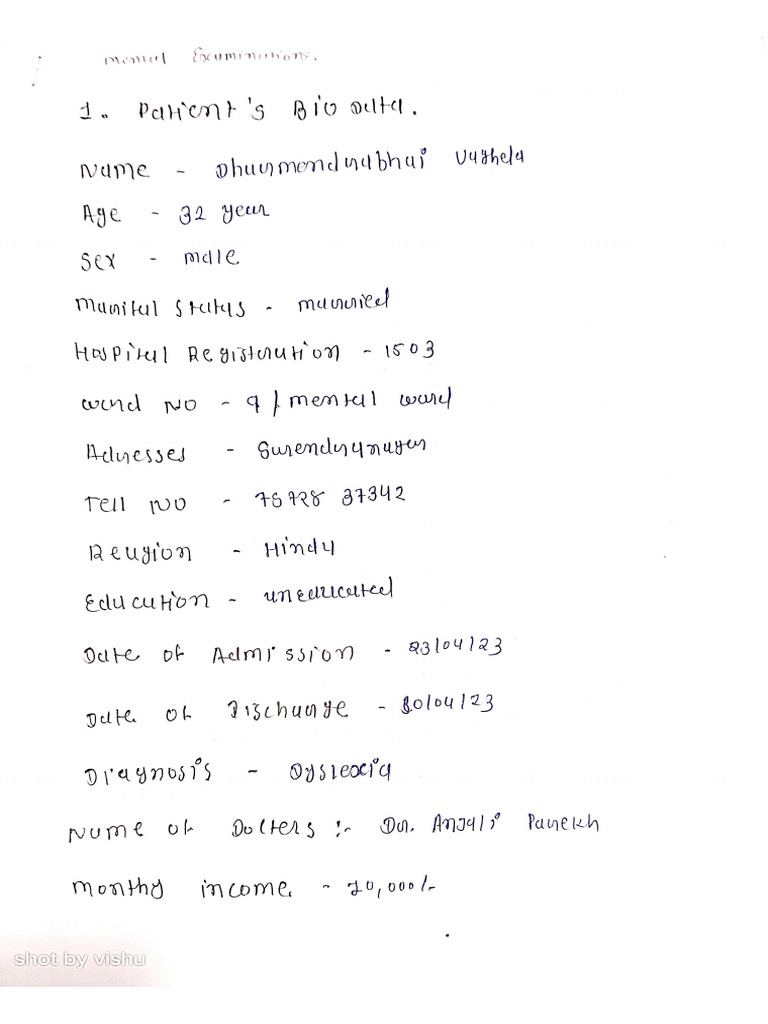 Mental Examinations.
1. Patient's Bio Data.
Name - Dharmendrabhai Vaghela
Age - 32 year
Sex - male
Marital Status - married
Hospital Registeration - 1503
Ward NO - 9 / mental ward
Adresses - Surendranagar
Tell NO - 75728 37342
Religion - Hindu
Education - uneducated
Date of Admission - 23/04/23
Date of Discharge - 30/04/23
Diagnosis - Dyslexia
Name of Docters :- Dr. Anjali Parekh
Monthy income - 20,000/-
shot by vishu